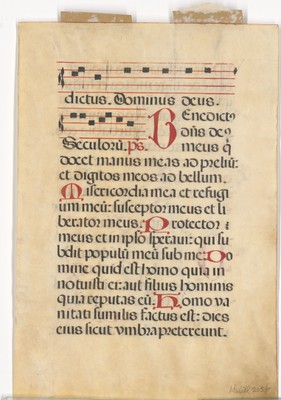 dictus. Dominus deus.
Benedict
Seculorũ. ps. dñs de
meus q̃
docet manus meas ad preliũ:
et digitos meos ad bellum.
Misericordia mea et refugi
um meũ: susceptor meus et li
berator meus. Protector
meus et in ipso speraui: qui su
bdit populũ meũ sub me. Do
mine quid est homo quia in
notuisti ei: aut filius hominis
quia reputas eũ. Homo va
nitati similis factus est: dies
eius sicut vmbra pretereunt.